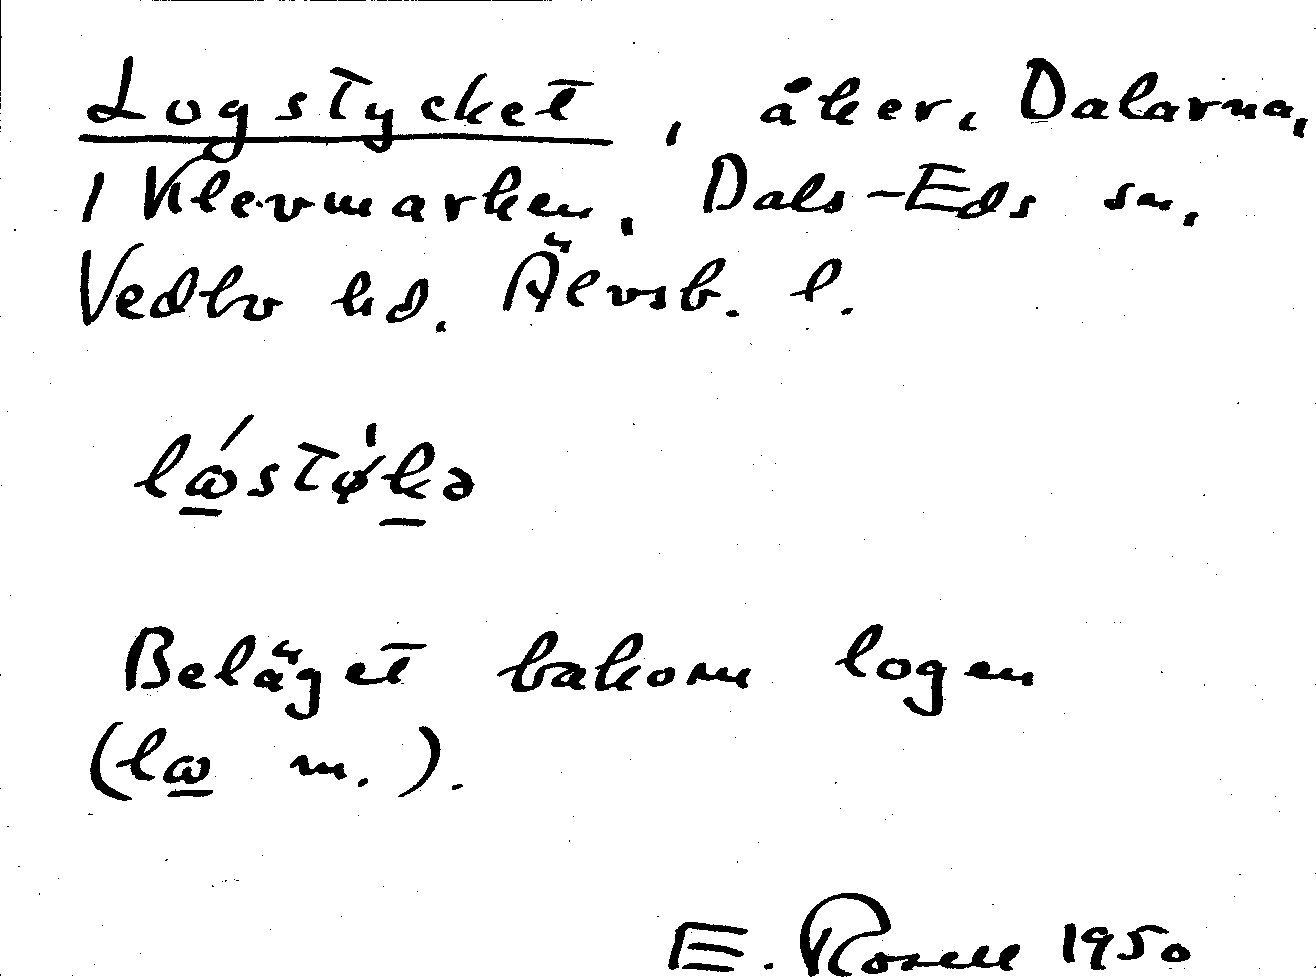 Logstycket, åker, Dalarna,
1 Klevmarken, Dals-Eds sn,
Vedbo hd. Älvsb. l.
Beläget bakom logen
(lω m.).
E. Rosell 1950